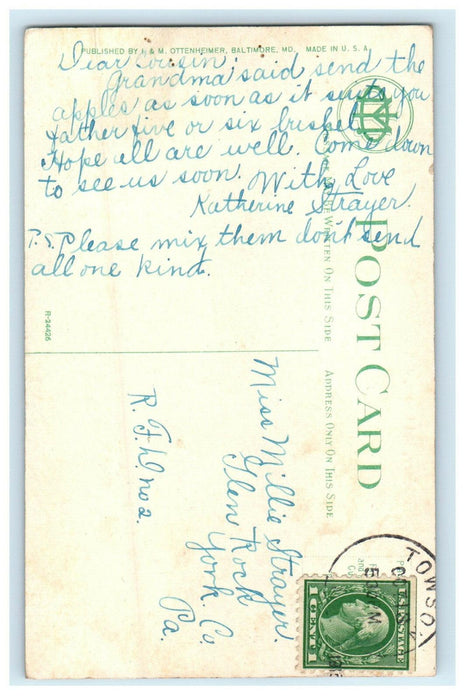 PUBLISHED BY I. & M. OTTENHEIMER, BALTIMORE, MD. MADE IN U. S. A.
Dear Cousin:
Grandma said send the
apples as soon as it suits you
father five or six bushel.
Hope all are well. Come down
to see us soon. With Love
Katherine Strayer.
P.S. Please mix them don't send
all one kind.
R-24426
POST CARD
WRITTEN ON THIS SIDE
ADDRESS ONLY ON THIS SIDE
Miss Millie Strayer
Glen Rock
York. Co.
Pa.
R. F. D. no 2.
TOWSON
U.S. POSTAGE
1 CENT 1